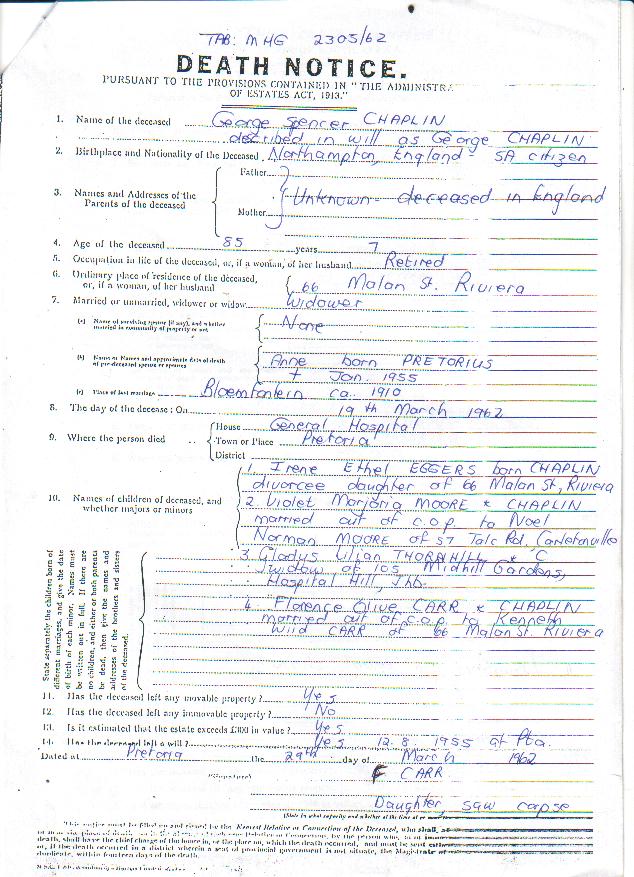 TAB: MHG 2305/62
DEATH NOTICE.
PURSUANT TO THE PROVISIONS CONTAINED IN "THE ADMINISTRA
OF ESTATES ACT, 1913."
1. Name of the deceased George Spencer CHAPLIN
described in will as George CHAPLIN
2. Birthplace and Nationality of the Deceased Northampton, England - SA citizen
Father
3. Names and Addresses of the Parents of the deceased Unknown - deceased in England
Mother
4. Age of the deceased 85 years 7
5. Occupation in life of the deceased, or, if a woman, of her husband Retired
6. Ordinary place of residence of the deceased, or, if a woman, of her husband 66 Malan St. Riviera
7. Married or unmarried, widower or widow Widower
(a) Name of surviving spouse (if any), and whether married in community of property or not None
(b) Name or Names and approximate date of death of pre-deceased spouse or spouses Anne born PRETORIUS
+ Jan 1955
(c) Place of last marriage Bloemfontein ca. 1910
8. The day of the decease; On 19th March 1962
9. Where the person died House General Hospital
Town or Place Pretoria
District
10. Names of children of deceased, and whether majors or minors
1. Irene Ethel EGGERS born CHAPLIN
divorcee daughter of 66 Malan St, Riviera
2. Violet Marjorie MOORE * CHAPLIN
married out of c.o.p. to Noel
Norman MOORE of 57 Talc Rd, Carletonville
3. Gladys Lilian THORNHILL * C
widow of 105 Midhill Gardens,
Hospital Hill, Jhb.
4. Florence Olive CARR * CHAPLIN
married out of c.o.p. to Kenneth
Wild CARR of 66 Malan St. Riviera
State separately the children born of
different marriages, and give the date
of birth of each minor. Names must
be written out in full. If there are
no children, and either or both parents
be dead, then give the names and
addresses of the brothers and sisters
of the deceased.
11. Has the deceased left any movable property? Yes
12. Has the deceased left any immovable property? No
13. Is it estimated that the estate exceeds £300 in value? Yes
14. Has the deceased left a will? Yes 12.8.1955 at Pta.
Dated at Pretoria the 29th day of March 1962
(Signature) F CARR
Daughter, saw corpse
(State in what capacity and whether at the time of
This notice must be filled up and signed by the Nearest Relative or Connection of the Deceased, who shall
death, shall have the chief charge of the house in, or the place on, which the death occurred, and must be sent
or, if the death occurred in a district wherein a seat of provincial government is not situate, the Magistrate of
duplicate, within fourteen days of the death.